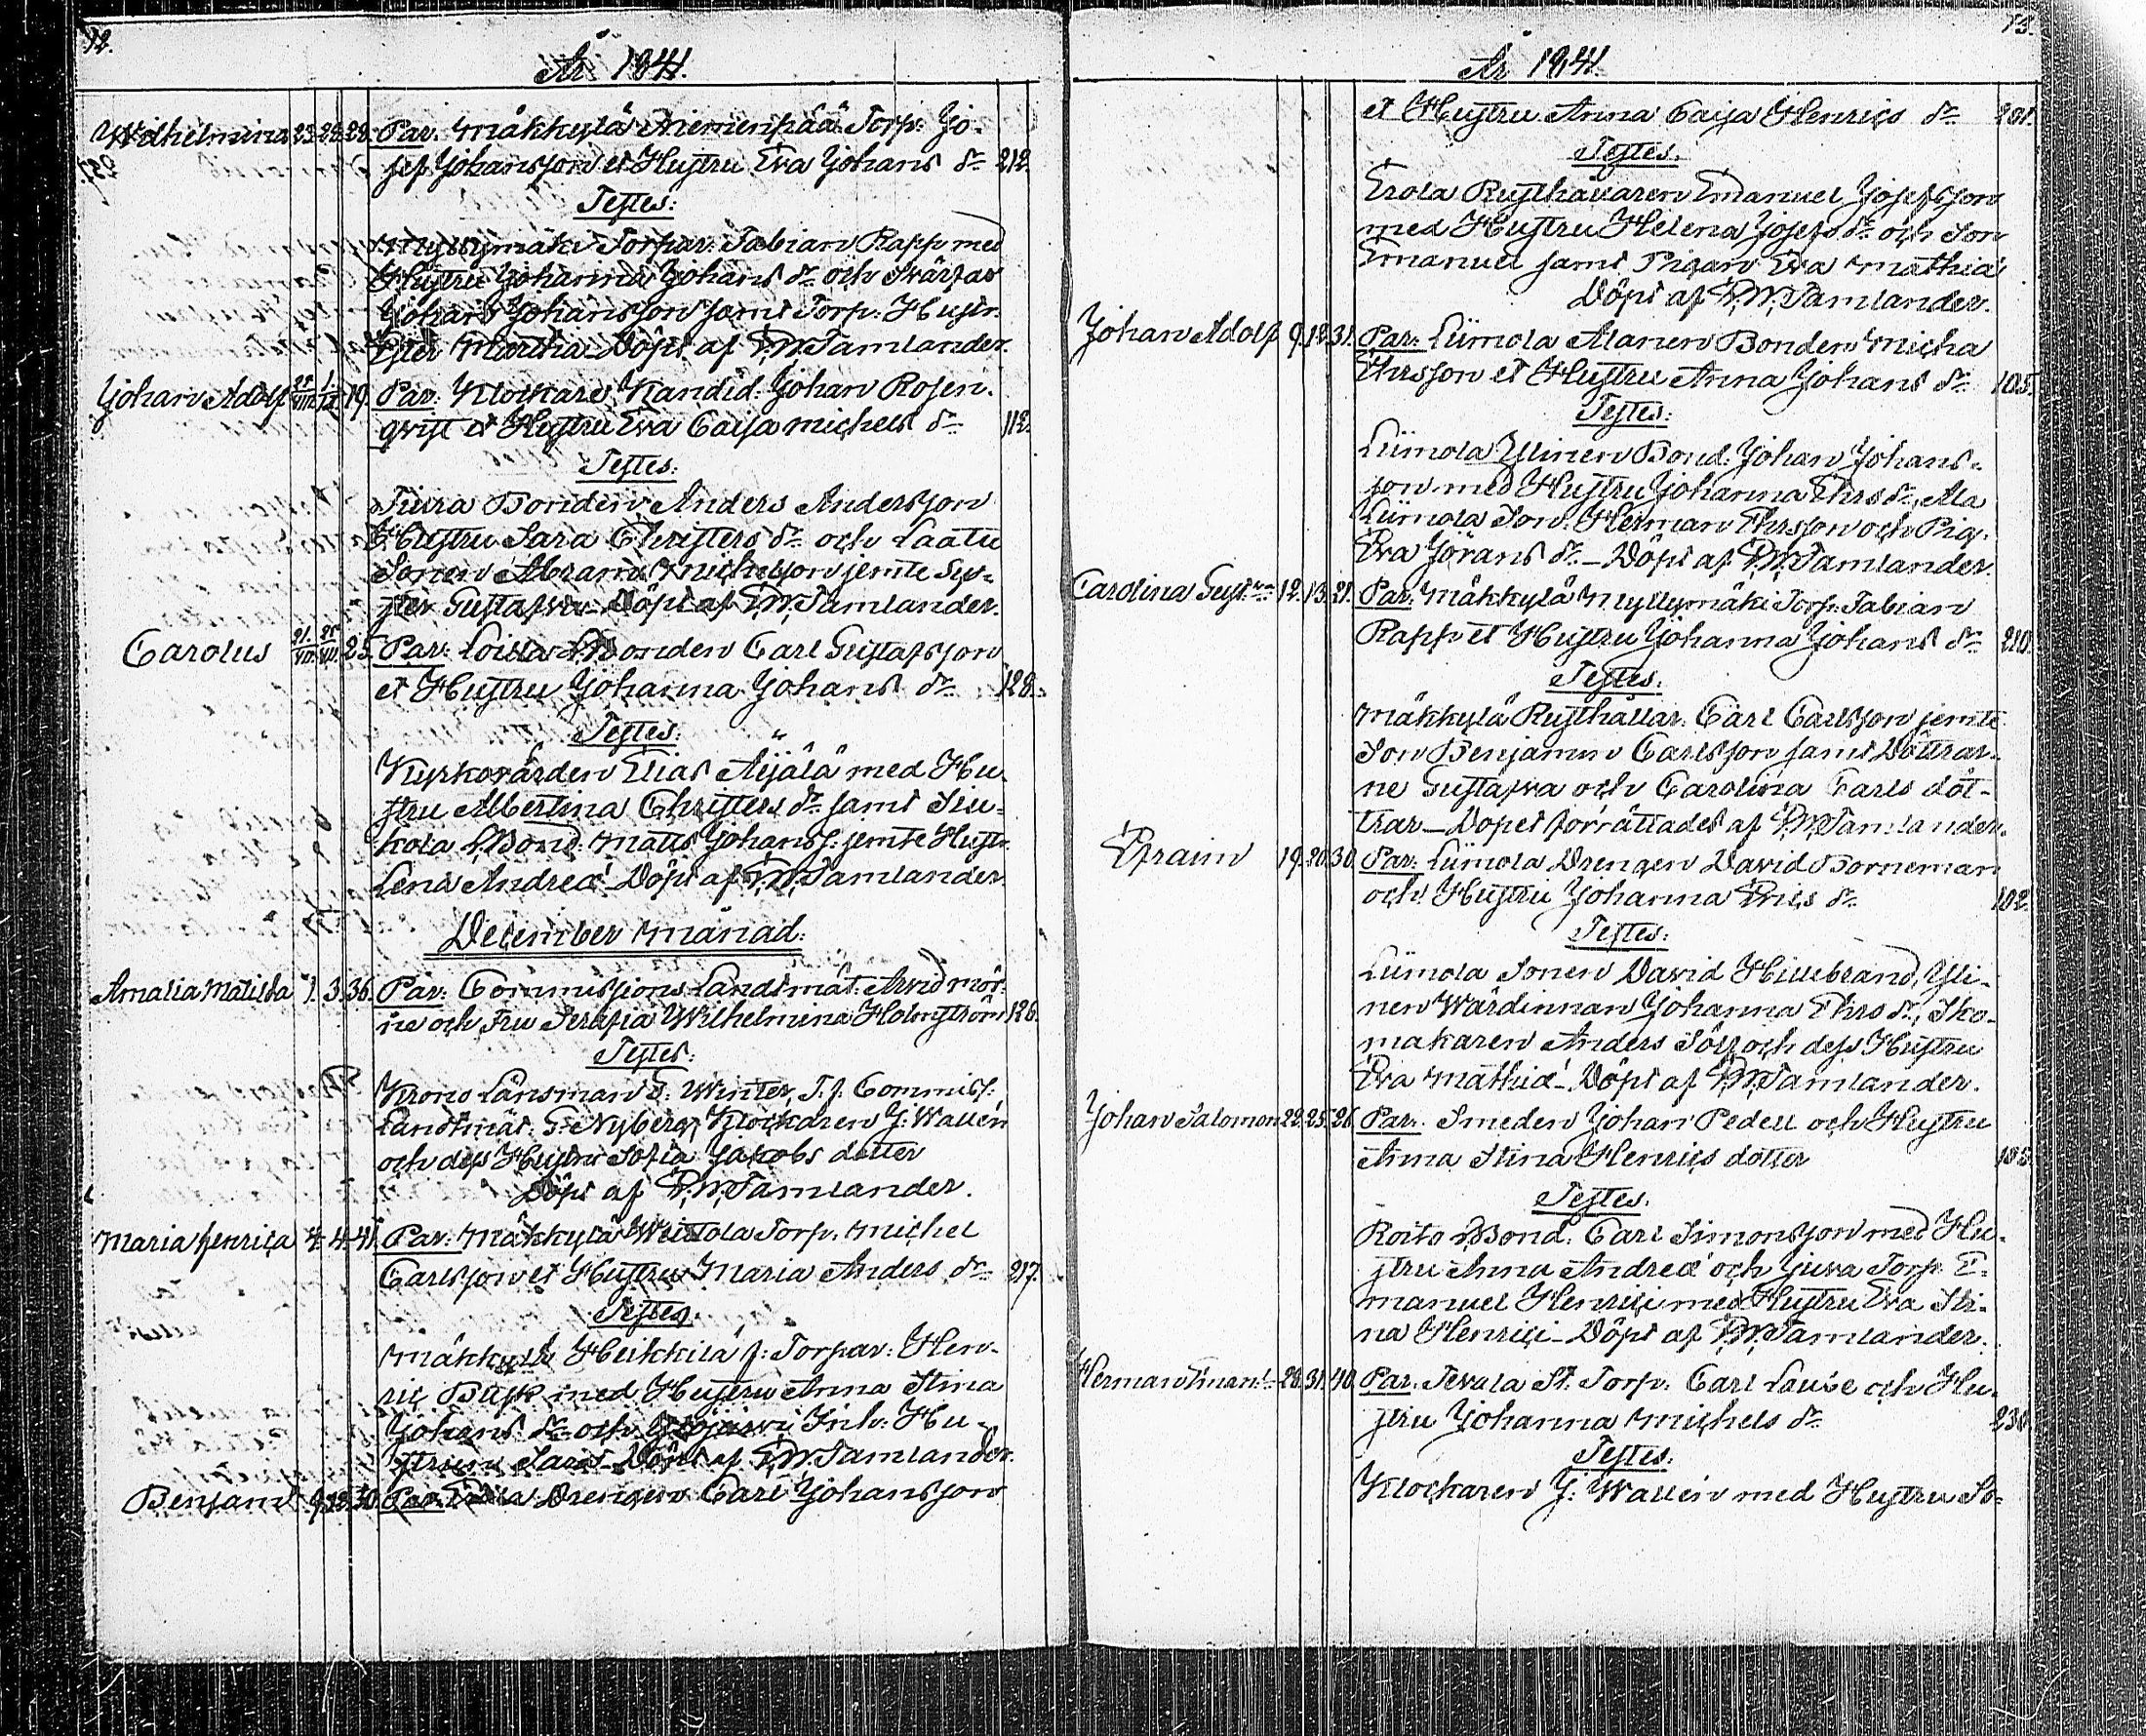 72.
År 1841.
Wilhelmina 23. 28. 28. Par. Mäkkylä Niemenpää Torp: Jo-
sef Johansson et Hustru Eva Johans dr 212.
Testes:
Myllymäki Torpar: Fabian Rapp med
Hustru Johanna Johans dr och Svärfar
Johan Johansson samt Torp: Hustr.
Martha Döpt af P. W. Tamlander.
Johan Adolf 19. Par: Klockare Kandid: Johan Rosen-
qvist et Hustru Eva Caisa Michels dr 112.
Testes:
Bonden Anders Andersson
Hustru Sara Christers dr och Laatu
Sonen Abram Michelsson jemte Sys-
ter Gustafva Döpt af P. W. Tamlander.
Carolus 21. 25. 25. Par: Bonden Carl Gustafsson
et Hustru Johanna Johans dr 128.
Testes:
Kyrkovärden Elias Äijälä med Hu-
stru Albertina Christers dr samt Siu-
kola Bond: Matts Johanss: jemte Hustr.
Lena Andreæ Döpt af P. W. Tamlander.
December Månad:
Amalia Matilda 1. 3. 36. Par: Commissions Landtmät: Arvid Mör-
ne och Fru Serafia Wilhelmina Holmström 126.
Testes:
Krono Länsman Winter, T. f. Commiss:
Landtmät: G. Nyberg, Klockaren J: Wallén
och dess Hustru Sofia Jakobs dotter
Döpt af P. W. Tamlander.
Maria Henrica 4. 4. 41. Par: Mäkkylä Torp: Michel
Carlsson et Hustru Maria Anders dr 217.
Testes:
Mäkkylä Heikkilä f: Torpar: Hen-
ric Busk med Hustru Anna Stina
Johans dr och Inh: Hu-
strun Sara Döpt af P. W. Tamlander.
Benjamin 9. 12. 30. Par: Erola Drengen Carl Johansson
73.
År 1841.
et Hustru Anna Caisa Henrics dr 201.
Testes.
Erola Rusthållaren Emanuel Josefsson
med Hustru Helena Josefs dr och Son
Emanuel samt Pigan Eva Mathiæ
Döpt af P. W. Tamlander.
Johan Adolf 9. 12. 31. Par: Liimola Alanen Bonden Micha
Ehrsson et Hustru Anna Johans dr 105.
Testes:
Liimola Ylinen Bond: Johan Johans-
son med Hustru Johanna Ehrs dr, Ala
Liimola Son: Herman Ehrsson och Pig:
Eva Jörans dr – Döpt af P. W. Tamlander.
Carolina Gust:va 12. 13. 21. Par: Mäkkylä Myllymäki Torp: Fabian
Rapp et Hustru Johanna Johans dr 210.
Testes.
Mäkkylä Rusthållar: Carl Carlsson jemte
Son Benjamin Carlsson samt Döttrar-
ne Gustafva och Carolina Carls döt-
trar – Dopet förrättades af P. W. Tamlander.
Efraim 19. 20. 30. Par: Liimola Drengen David Borneman
och Hustru Johanna Erics dr 102.
Testes:
Liimola Sonen David Hillebrand, Yli-
nen Wärdinnan Johanna Ehrs dr, Sko-
makaren Anders och dess Hustru
Eva Mathiæ. Döpt af P. W. Tamlander.
Johan Salomon 22. 25. 26. Par. Smeden Johan Pedell och Hustru
Anna Stina Henrics dotter
Testes.
Roito Bond: Carl Simonsson med Hu-
stru Anna Andreæ och Juva Torp: E-
manuel Henrici med Hustru Eva Sti-
na Henrici – Döpt af P. W. Tamlander.
Herman Eman:l 28. 31. 40. Par. Tevala St: Torp: Carl Lause och Hu-
stru Johanna Michels dr 230.
Testes.
Klockaren J: Wallén med Hustru So-